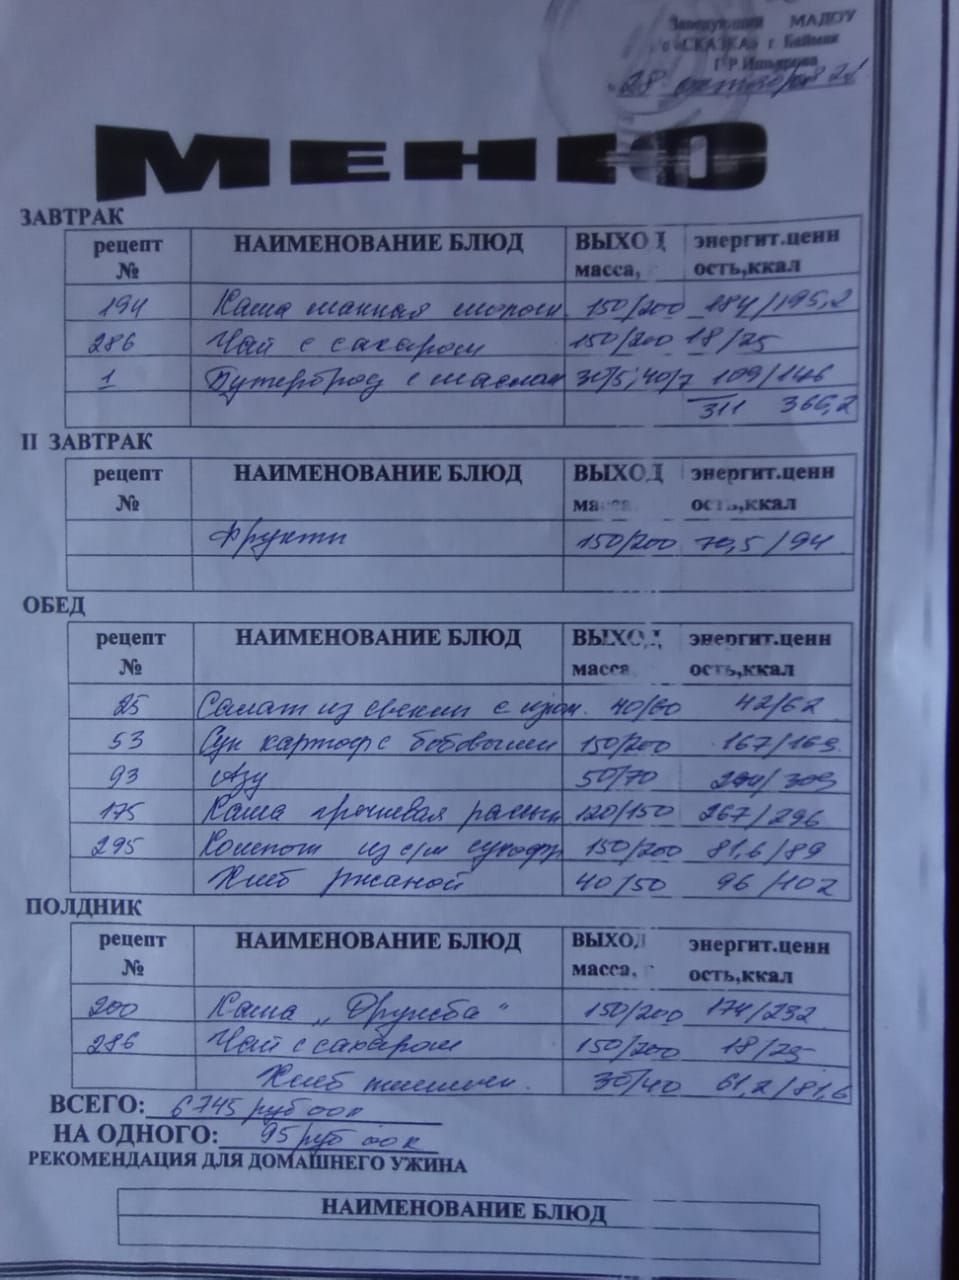 Заведующий МАДОУ
с «СКАЗКА» г. Баймак
Г.Р.
28 октября 21
МЕНЮ
ЗАВТРАК
рецепт № НАИМЕНОВАНИЕ БЛЮД ВЫХОД масса, энергит.ценн ость,ккал
194 Каша манная молочн 150/200 184/195,2
286 Чай с сахаром 150/200 18/25
1 Бутерброд с маслом 30/5; 40/7 109/146
311 366,2
II ЗАВТРАК
рецепт № НАИМЕНОВАНИЕ БЛЮД ВЫХОД масса, энергит.ценн ость,ккал
Фрукты 150/200 70,5/94
ОБЕД
рецепт № НАИМЕНОВАНИЕ БЛЮД ВЫХОД масса энергит.ценн ость,ккал
25 Салат из свеклы с изюм. 40/60 42/62
53 Суп картоф с бобовыми 150/200 167/169
93 Азу 50/70 /309
175 Каша гречневая рассып 120/150 267/296
295 Компот из с/м сухофр 150/200 81,6/89
Хлеб ржаной 40/50 96/102
ПОЛДНИК
рецепт № НАИМЕНОВАНИЕ БЛЮД ВЫХОД масса, энергит.ценн ость,ккал
200 Каша „Дружба“ 150/200 174/232
286 Чай с сахаром 150/200 18/25
Хлеб пшеничн. 30/40 61,2/81,6
ВСЕГО: 6745 руб 00 к
НА ОДНОГО: 95 руб 00 к
РЕКОМЕНДАЦИЯ ДЛЯ ДОМАШНЕГО УЖИНА
НАИМЕНОВАНИЕ БЛЮД